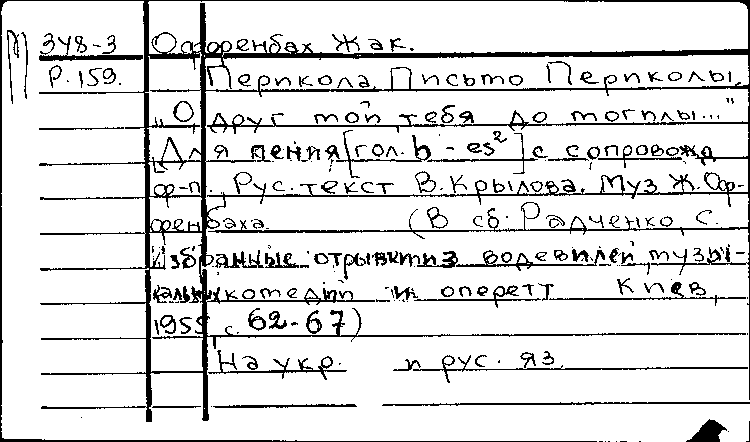 П 348-3 Оффенбах, Жак.
Р.159. Перикола. Письмо Периколы.
„О, друг мой, тебя до могилы..."
[Для пения [гол. h - es²] с сопровожд
ф-п., Рус. текст В. Крылова. Муз Ж. Оф-
фенбаха. (В сб. Радченко, С.
Избранные отрывки из водевилей, музы-
кальных комедий и оперетт Киев,
1955, с. 62-67)
На укр. и рус. яз.